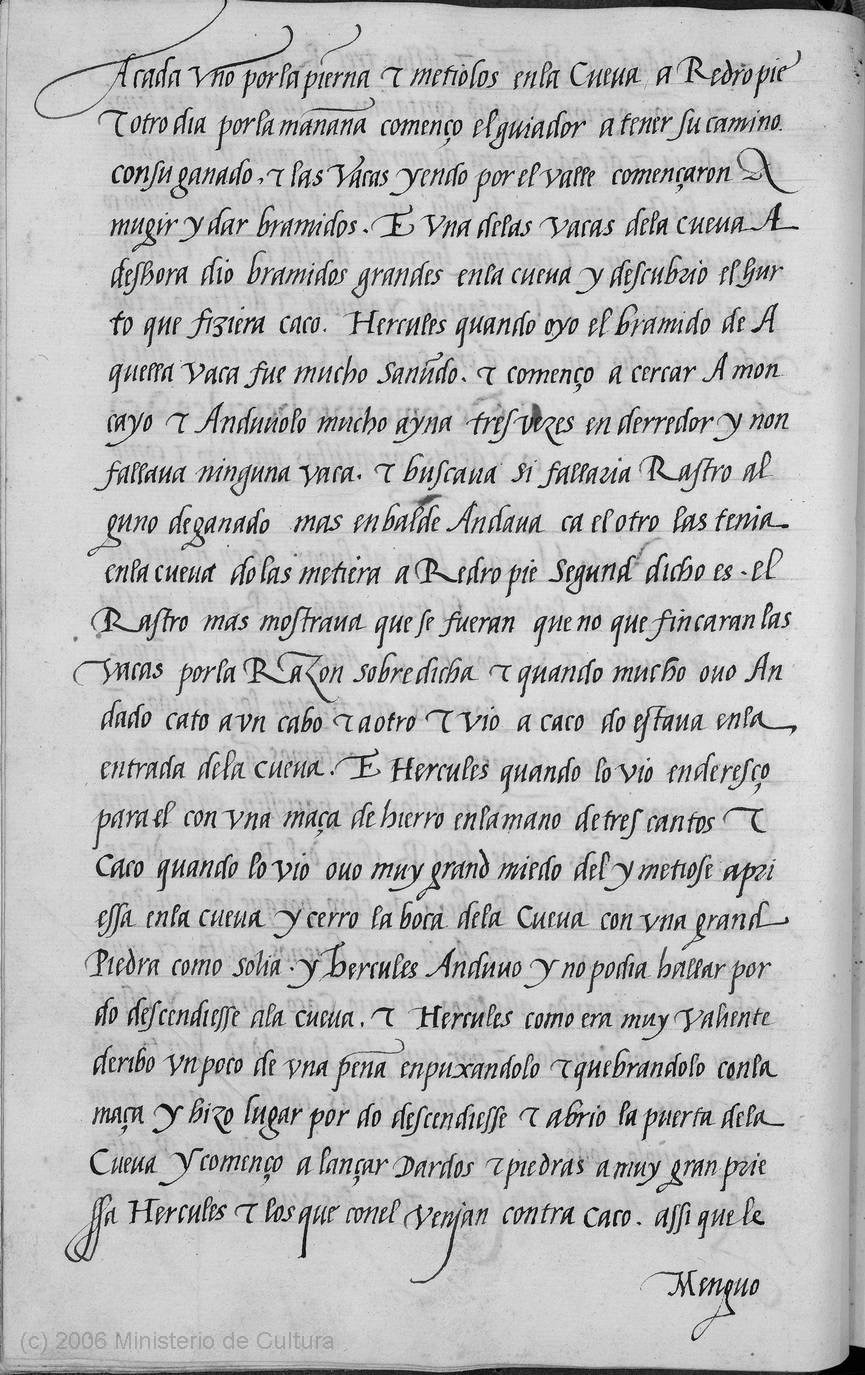 Acada vno porla pierna τ metiolos enla Cueua a Redropie
τ otro dia porla mañana començo el guiador a tener su camino.
consu ganado, τ las Vacas yendo por el valle començaron A
mugir y dar bramidos. E Vna delas vacas dela cueua A
deshora dio bramidos grandes enla cueua y descubrio el hur
to que fiziera caco. Hercules quando oyo el bramido de A
quella vaca fue mucho sanũdo. τ començo a cercar A mon
cayo τ Anduuolo mucho ayna tres vezes en derredor y non
fallaua ninguna vaca. τ buscaua si fallaria Rastro al
guno de ganado mas en balde Andaua ca el otro las tenia
enla cueua do las metiera a Redro pie Segund dicho es. el
Rastro mas mostraua que se fueran que no que fincaran las
Vacas porla Razon sobre dicha τ quando mucho ouo An
dado cato a vn cabo τ a otro τ vio a caco do estaua enla
entrada dela cueua. E Hercules quando lo vio enderesço
para el con vna maça de hierro enla mano de tres cantos τ
Caco quando lo vio ouo muy grand miedo del y metiose apri
essa enla cueua y cerro la boca dela Cueua con vna grand
Piedra como solia. y hercules Anduuo y no podia hallar por
do descendiesse ala cueua. τ Hercules como era muy valiente
deribo vn poco de vna peña enpuxandolo τ quebrandolo conla
maça y hizo lugar por do descendiesse τ abrio la puerta dela
Cueua y començo a lançar Dardos τ piedras a muy gran prie
ssa Hercules τ los que conel venjan contra Caco. assi que le
Menguo
(c) 2006 Ministerio de Cultura